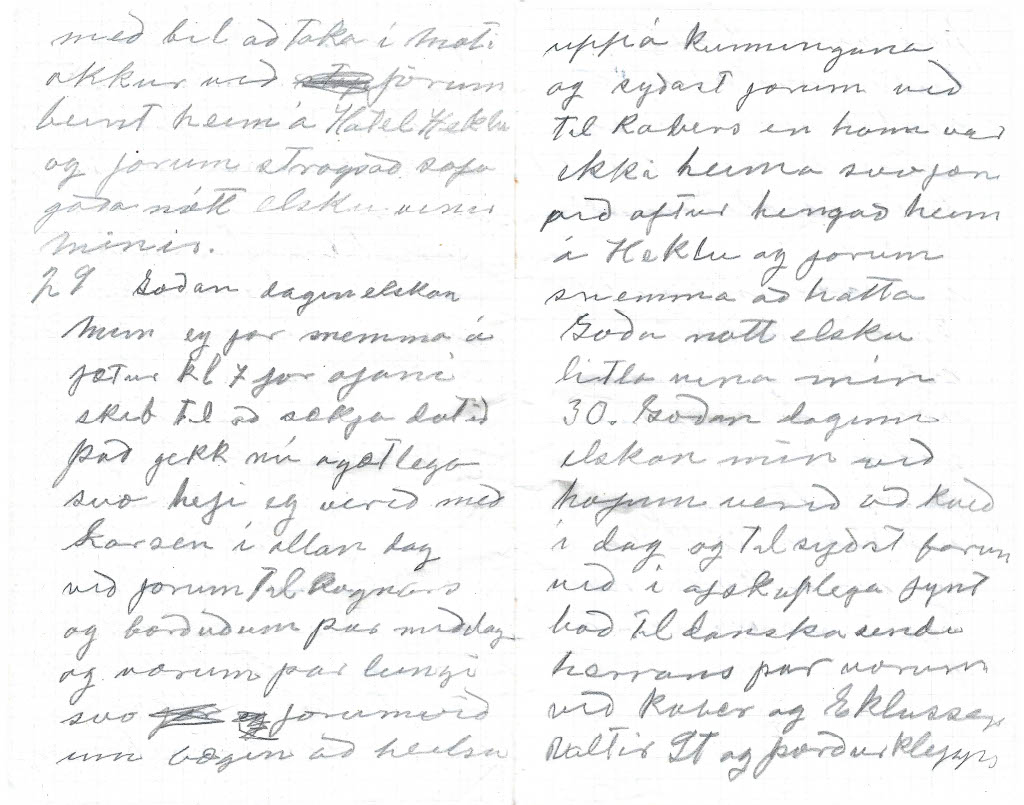 með bil að taka í moti
okkur við forum
beint heim á Hotel Heklu
og forum strags að sofa
goða nótt elsku vinir
minir.
29 Goðan dagin elskan
min eg for snemma á
fætur kl 7 for ofani
skib til að sækja dotið
það gekk nú agætlega
svo hefi eg verið með
Larsen í allan dag
við forum til Ragnars
og borðuðum þar middag
og vorum þar lengi
svo forum við
um bægin að heilsa
uppá kunningana
og syðast forum við
til Rabers en hann var
ekki heima svo for
við aftur hingað heim
á Heklu og forum
snemma að hatta
Goða nott elsku
litla vina min
30. Goðan daginn
elskan min við
hofum verið að
í dag og til syðst forum
við í afskaplega fynt
boð til danska sendi
herrans þar vorum
við Raber og
Valtir St og þorður